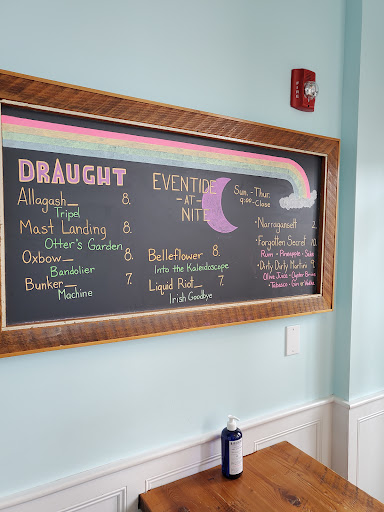 DRAUGHT
Allagash_ 8.
Tripel
Mast Landing 8.
Otter's Garden
Oxbow_ 8.
Bandolier
Bunker_ 7.
Machine
Belleflower 8.
Into the Kaleidoscope
Liquid Riot_ 7.
Irish Goodbye
EVENTIDE
-AT-
NITE
Sun. - Thur.
9:00-Close
·Narragansett 2.
·Forgotten Secret 10.
Rum - Pineapple - Sake
·Dirty Dirty Martini 9.
Olive Juice - Oyster Brine
-Tabasco - Gin or Vodka
FIRE